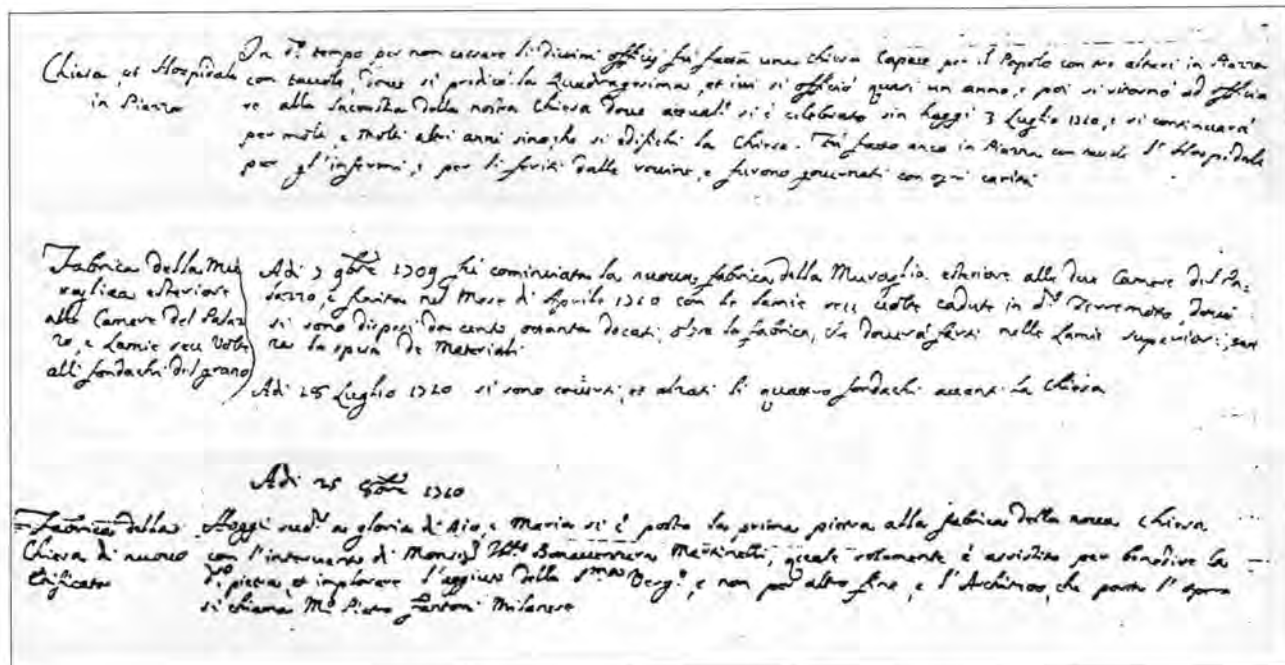 Chiesa, et Hospidale
in Piazza
In d.º tempo per non cessare li divini officij fù fatta una chiesa capace per il Popolo con tre altari in Piazza
con tavole, dove si predicò la Quadragesima, et ivi si officiò quasi un anno, e poi si ritornò ad officia
re alla sacrestia della nostra Chiesa dove si è celebrato sin hoggi 3 Luglio 1710, e si continuarà
per molti, e molti altri anni sino, che si edifichi la Chiesa. Fù fatto anco in Piazza con tavole l'Hospidale
per gl'infermi, e per li feriti dalle rovine, e furono governati con ogni carità
Fabrica della Mu
raglia esteriore
alle Camere del Palaz
zo, e Lamie seu Volte
alli fondachi del grano
Adi 7 9bre 1709 fù cominciata la nuova fabrica della Muraglia esteriore alle due Camere del Pa:
lazzo, e finita nel Mese di Aprile 1710 con le Lamie seu Volte cadute in d.º Terremoto, dove
si sono dispesi docati, oltre la fabrica, che doverà farsi nelle Lamie superiori, sen
za la spesa de Materiali
Adi 28 Luglio 1710 si sono coverti, et alzati li quattro fondachi avanti la Chiesa
Adi 25 8bre 1710
Fabrica della
Chiesa di nuovo
Edificata
Hoggi sud.º a gloria di Dio, e Maria si è posto la prima pietra alla fabrica della nova Chiesa
con l'intervento di Monsig.r Bonaventura Martinelli, quale solamente è assistito per benedire la
d.ª pietra, et implorare l'aggiuto della S.ma Verg.e, e non per altro fine, e l'Architetto, che porta l'opera
si chiama M.º Pietro Fantoni Milanese